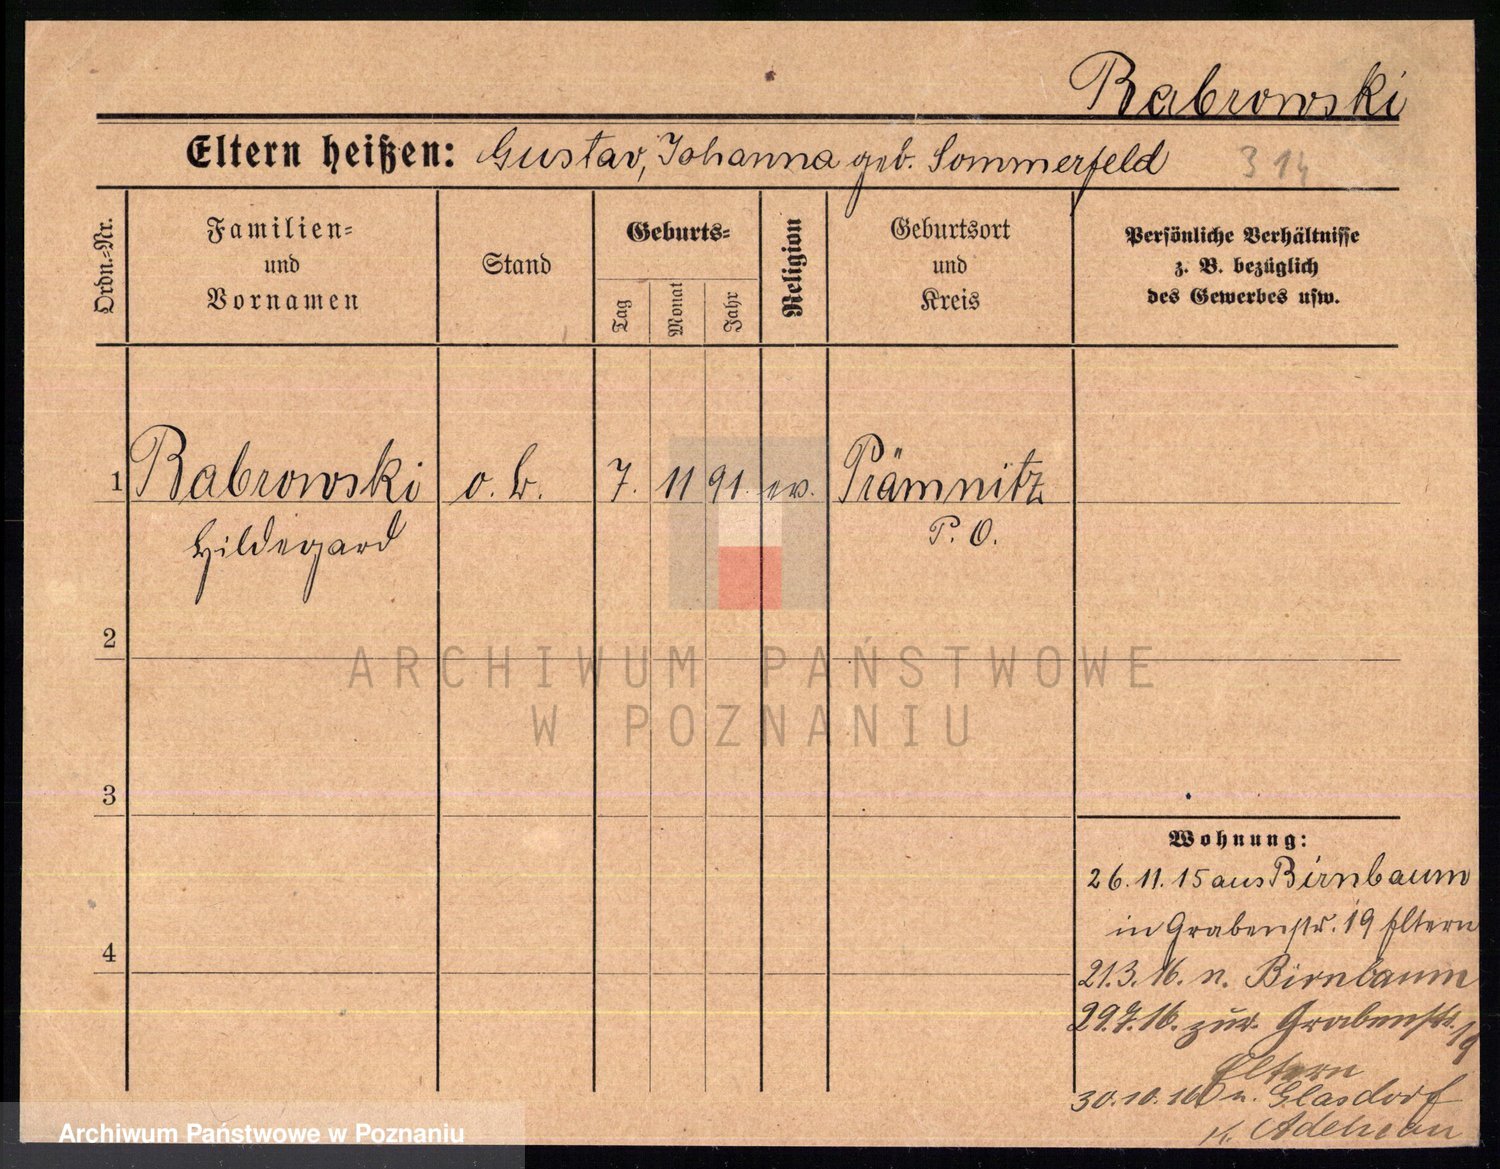 Babrowski
Eltern heißen: Gustav, Johanna geb. Sommerfeld
314
Ordn.-Nr.
Familien- und Vornamen
Stand
Geburts-
Tag
Monat
Jahr
Religion
Geburtsort und Kreis
Persönliche Verhältnisse
z. B. bezüglich
des Gewerbes usw.
1 Babrowski o. B. 7. 11 91. ev. Prämnitz
Hildegard P. O.
2
ARCHIWUM PAŃSTWOWE
W POZNANIU
3
Wohnung:
26.11.15 aus Birnbaum
in Grabenstr. 19 Eltern
4
21.3.16. n. Birnbaum
29.7.16. zur. Grabenstr. 19
Eltern
30.10.16 n. Glasdorf
Adelnau
Archiwum Państwowe w Poznaniu